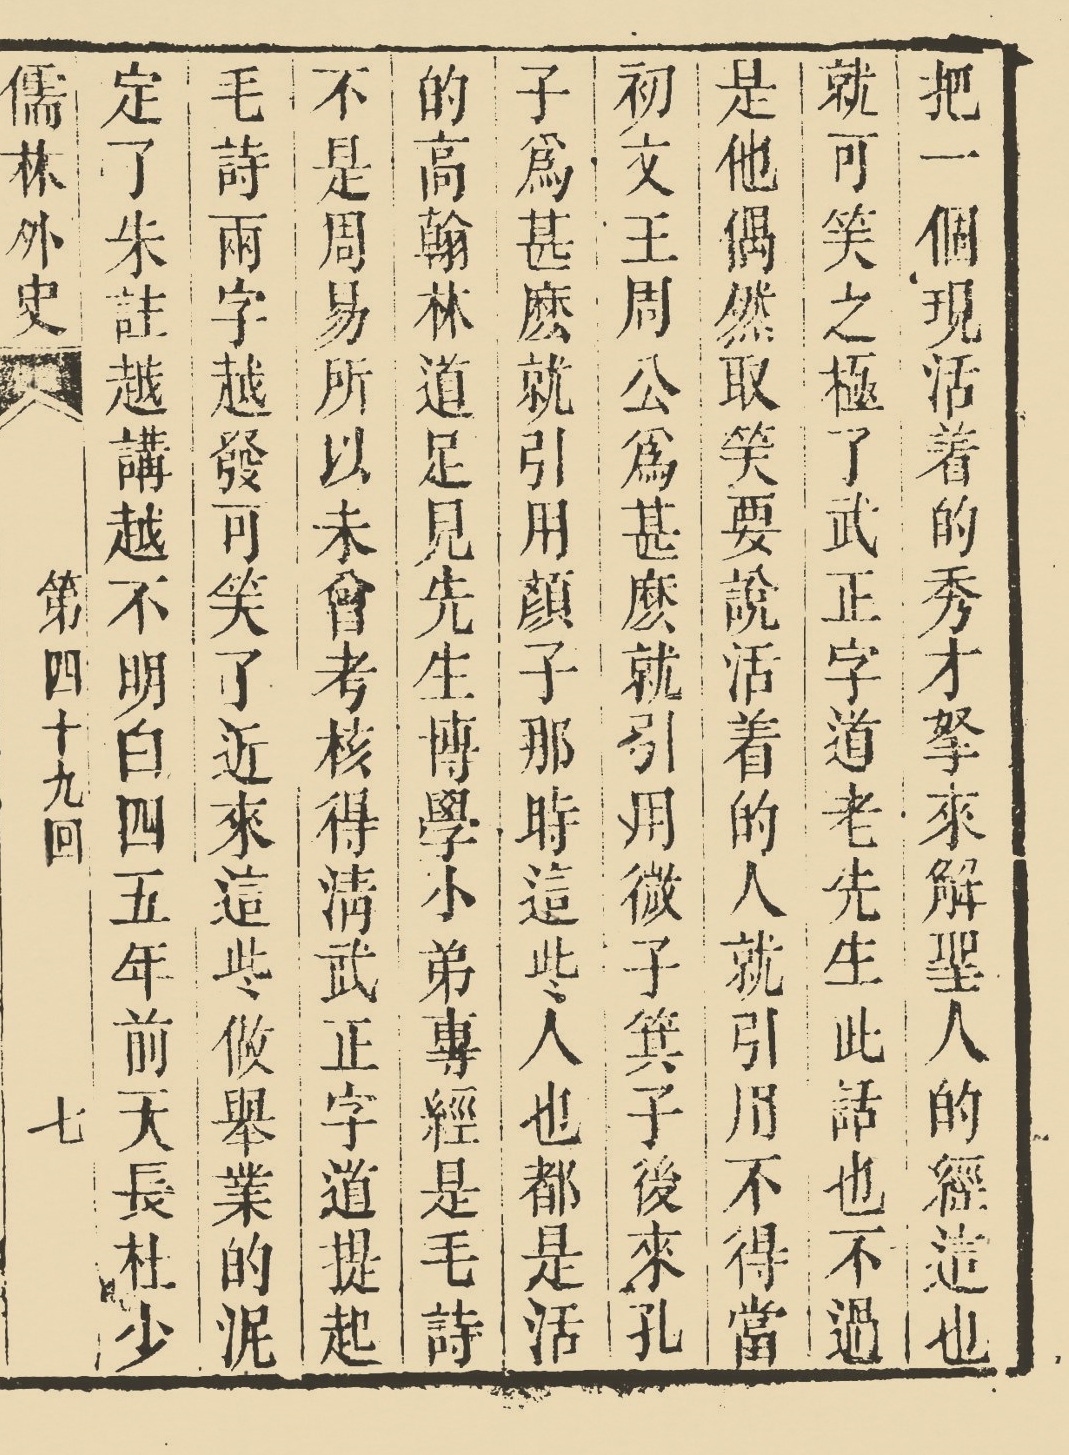 把一個現活着的秀才拏來解聖人的經這也
就可笑之極了武正字道老先生此話也不過
是他偶然取笑要說活着的人就引用不得當
初文王周公爲甚麽就引用微子箕子後來孔
子爲甚麽就引用顏子那時這些人也都是活
的高翰林道足見先生博學小弟專經是毛詩
不是周易所以未曾考核得淸武正字道提起
毛詩兩字越發可笑了近來這些做舉業的泥
定了朱註越講越不明白四五年前天長杜少
儒林外史
第四十九回
七